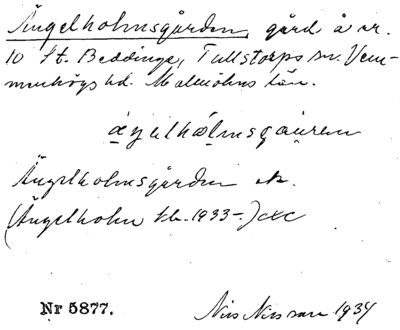 Ängelholmsgården, gård å nr.
10 St. Beddinge, Tullstorps sn. Vem-
menhögs hd. Malmöhus län.
Ängelholmsgården
(Ängelholm 1933-.)
Nr 5877.
Nils Nilsson 1934